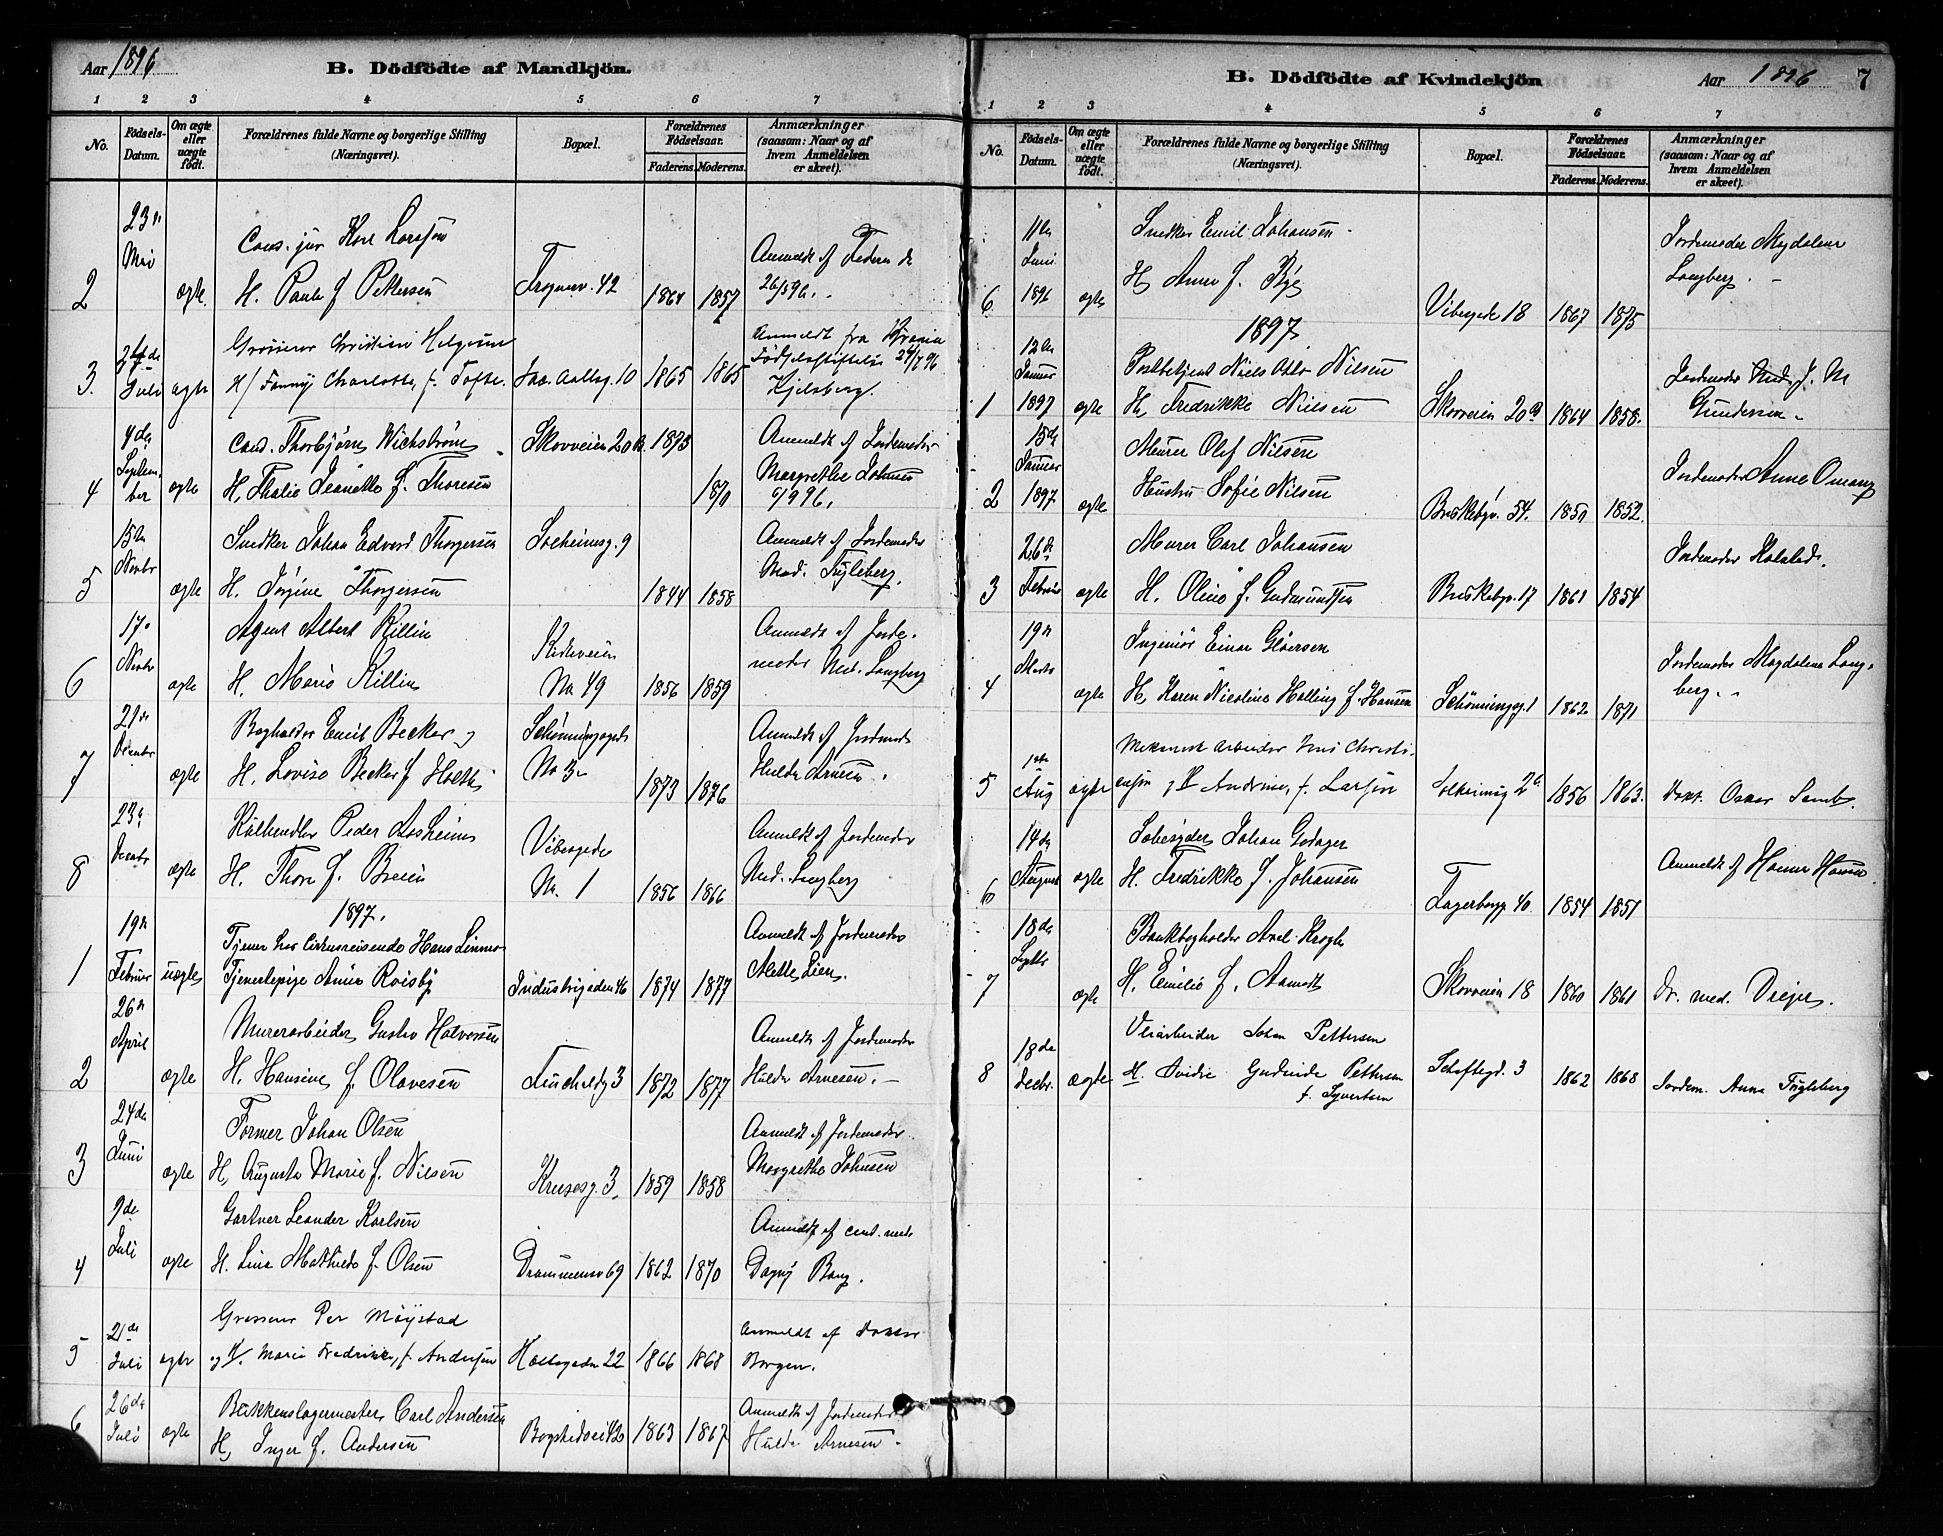 Aar 1896
B. Dödfödte af Mandkjön.
1 2 3 4 5 6 7
No.
Födsels-Datum.
Om ægte eller uægte födt.
Forældrenes fulde Navne og borgerlige Stilling (Næringsvei).
Bopæl.
Forældrenes Födselsaar.
Faderens. Moderens.
Anmærkninger (saasom: Naar og af hvem Anmeldelsen er skeet).
2 23de Mai ægte
Cand. jur Karl Larssen
H. Paula f. Pettersen
Frognerv. 42 1864 1857
Anmeldt af Faderen
26/5 96.
3. Juli ægte
Grosserer Christian Helgesen
H/ Fanny Charlotte, f. Tofte.
Jac. Aallsg. 10 1865 1865
Anmeldt fra
Födselsstiftelse
Kjelsberg.
4 4de September ægte
Cand. Thorbjørn Wichstrøm
H. Thalie Jeanette f. Thoresen
Skovveien 20 B. 1873 1870
Anmeldt af Jordemoder
Margrethe Johnsen
5 15de Novbr ægte
Snedker Johan Edvard Thorgersen
H. Jørgine Thorgersen
Solheimsg. 9 1844 1858
Anmeldt af Jordemoder
Mad. Fugleberg.
6 17. Novbr ægte
Agent Albert Killin
H. Marie Killin
Kirkeveien No 49 1856 1859
Anmeldt af Jordemoder
Mad. Langberg
7 21de ægte
Bogholder Emil Becker og
H. Lovise Becker f.
Schøningsgade No 3 1873 1876
Anmeldt af Jordemoder
Hulda Arnesen.
8 23de ægte
Kulhandler Peder Aasheim
H. Thora f. Breien
Vibesgade No. 1 1856 1866
Anmeldt af Jordemoder
Mad. Langberg
1897.
1 19de Februar uægte
Tjener hos Cirkusreisende Hans
Tjenestepige Anna
Industrigaden 46 1874 1877
Anmeldt af Jordemoder
Alette Lien.
2 26de April ægte
Murerarbeider Gustav Halvorsen
H. Hansine f. Olavesen
3 1872 1877
Anmeldt af Jordemoder
Hulda Arnesen.
3 24de Juni ægte
Former Johan Olsen
H. Augusta Marie f. Nilsen
Krusesg. 3 1859 1858
Anmeldt af Jordemoder
Margrethe Johnsen
4 9de Juli ægte
Gartner Leander Karlsen
H. Lina Mathilde f. Olsen
Drammensv 69 1862 1870
Anmeldt af cand. med.
Dagny Bang.
5 21de Juli ægte
Grosserer Per Møystad
og H. Marie Fredrikke, f. Andersen
Holtegaden 22 1866 1868
Anmeldt af Doktor
Borgen.
6 26de Juli ægte
Blikkenslagermester Carl Andersen
H. Inger f. Andersen
Bogstadvei 42 1863 1867
Anmeldt af Jordemoder
Hulda Arnesen
B. Dödfödte af Kvindekjön
Aar 1896
7
1 2 3 4 5 6 7
No.
Födsels-Datum.
Om ægte eller uægte födt.
Forældrenes fulde Navne og borgerlige Stilling (Næringsvei).
Bopæl.
Forældrenes Födselsaar.
Faderens. Moderens.
Anmærkninger (saasom: Naar og af hvem Anmeldelsen er skeet).
6 11te Juni 1896 ægte
Snedker Emil Johansen
H. Anna f.
Vibegade 18 1867 1875
Jordemoder Magdalena
Langberg.
1897
1 12te Januar 1897 ægte
Postbetjent Niels Nilsen
H. Fredrikke Nilsen
Skovveien 20 B 1864 1858.
Jordemoder J. M
Gundersen
2 15de Januar 1897 ægte
Murer Olaf Nilsen
Hustru Sofie Nilsen
Briskebyv. 54. 1852.
Jordemoder Anne Omang
3 26de Februar ægte
Murer Carl Johansen
H. Oline f. Gudmundsen
Briskebyv. 17 1861 1854
Jordemoder
4 19de Marts ægte
Ingeniør Einar Gløersen
H. Karen Nicoline Halling f. Hansen
Schønningsg. 1 1862 1871
Jordemoder Magdalena Langberg.
5 1ste Aug ægte
Mekanisk Arbeider Jens Christiensen
og H Andrine, f. Larsen
Solheimsg 2 1856 1863.
Dokt. Oskar
6 14de August ægte
Johan Godager
H. Fredrikke f. Johansen
40. 1854 1851
Anmeldt af
7 18de Septbr ægte
Bankbogholder Axel Krogh
H. Emilie f. Aamodt
Skovveien 18 1860 1861
Dr. med. Dreyer.
8 18de Decbr. ægte
Johan Pettersen
H. Gudminda Pettersen
f. Syvertsen
3 1862 1868
Jordem. Anna Fugleberg